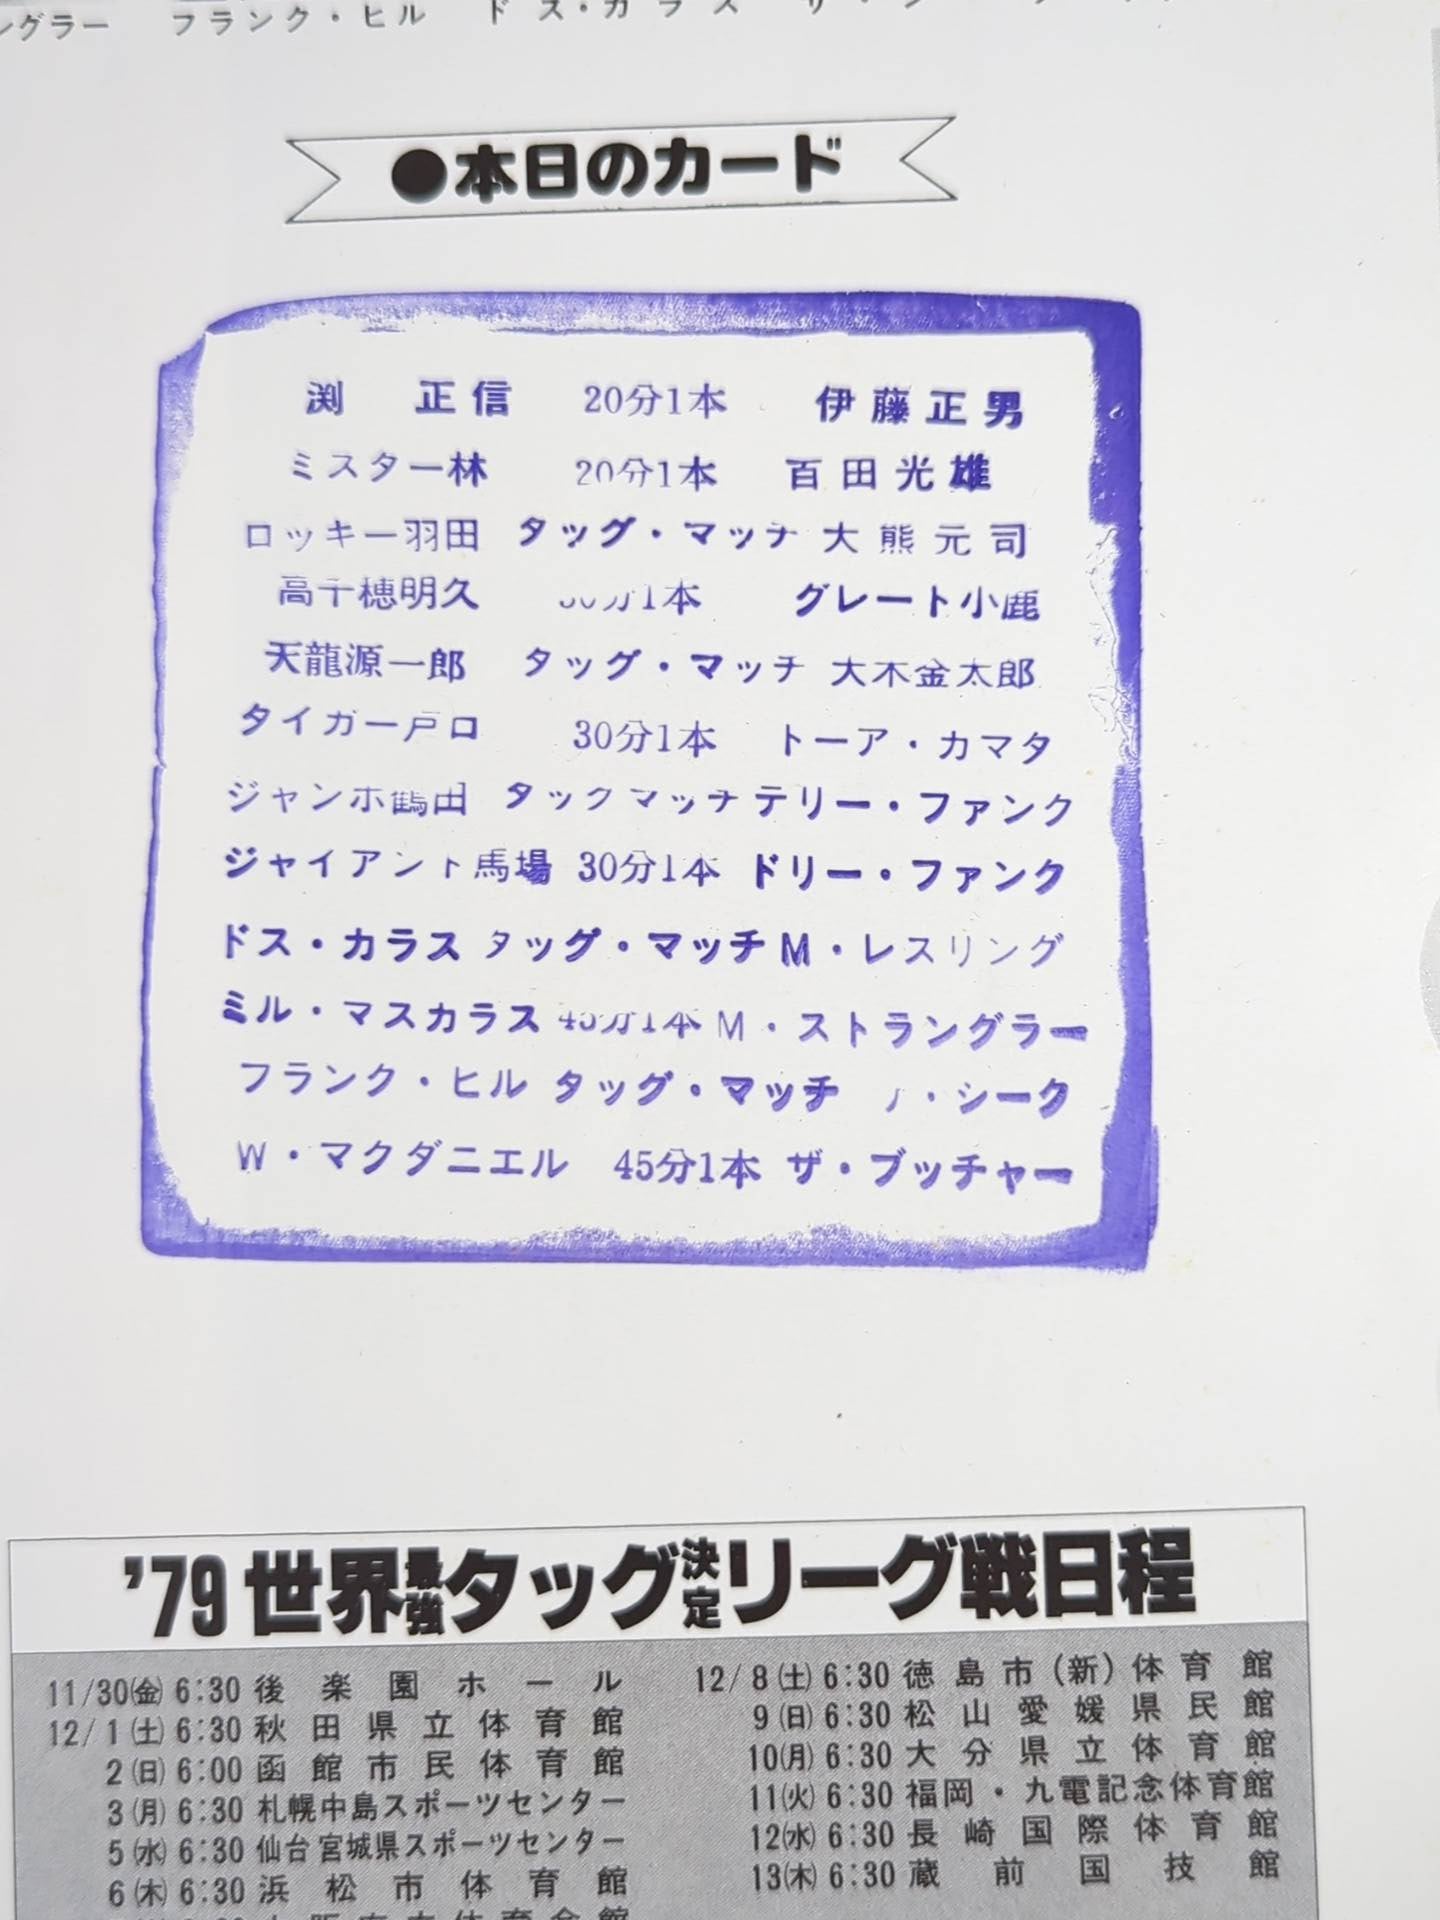 ングラー フランク・ヒル ドス・カラス
●本日のカード
渕 正信 20分1本 伊藤正男
ミスター林 20分1本 百田光雄
ロッキー羽田 タッグ・マッチ 大熊元司
高千穂明久 30分1本 グレート小鹿
天龍源一郎 タッグ・マッチ 大木金太郎
タイガー戸口 30分1本 トーア・カマタ
ジャンボ鶴田 タッグマッチ テリー・ファンク
ジャイアント馬場 30分1本 ドリー・ファンク
ドス・カラス タッグ・マッチ M・レスリング
ミル・マスカラス 45分1本 M・ストラングラー
フランク・ヒル タッグ・マッチ ・シーク
W・マクダニエル 45分1本 ザ・ブッチャー
'79世界最強タッグ決定リーグ戦日程
11/30㈮6:30後楽園ホール
12/1㈯6:30秋田県立体育館
2㈰6:00函館市民体育館
3㈪6:30札幌中島スポーツセンター
5㈬6:30仙台宮城県スポーツセンター
6㈭6:30浜松市体育館
12/8㈯6:30徳島市(新)体育館
9㈰6:30松山愛媛県民館
10㈪6:30大分県立体育館
11㈫6:30福岡・九電記念体育館
12㈬6:30長崎国際体育館
13㈭6:30蔵前国技館